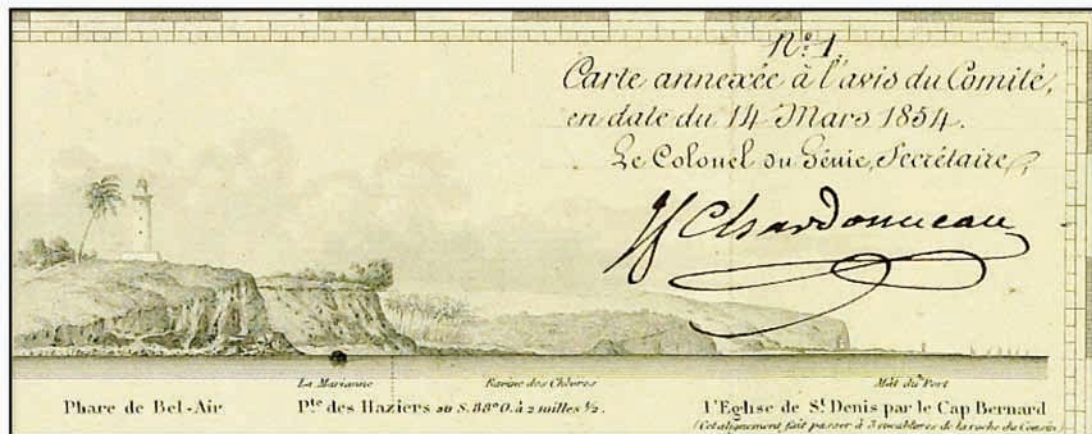 N.º 1.
Carte annexée à l'avis du Comité,
en date du 14 Mars 1854.
Le Colonel du Génie, Secrétaire,
Chardonneau
La Marianne Ravine des Chèvres Mât du Port
Phare de Bel-Air Pte des Haziers au S. 88º O. à 2 milles ½. l'Eglise de St Denis par le Cap Bernard
(Cet alignement fait passer à 3 encablures de la roche du Cousin)